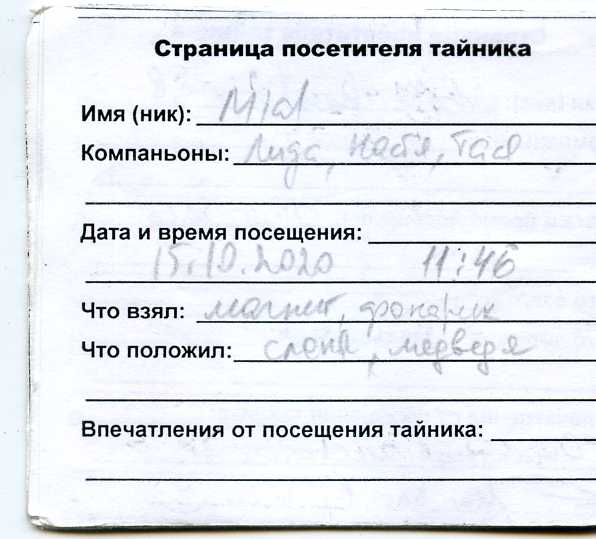 Страница посетителя тайника
Имя (ник): Mid
Компаньоны: Лида, Настя, Тая
Дата и время посещения:
15.10.2020 11:46
Что взял: магнит, фонарик
Что положил: слона, медведя
Впечатления от посещения тайника: